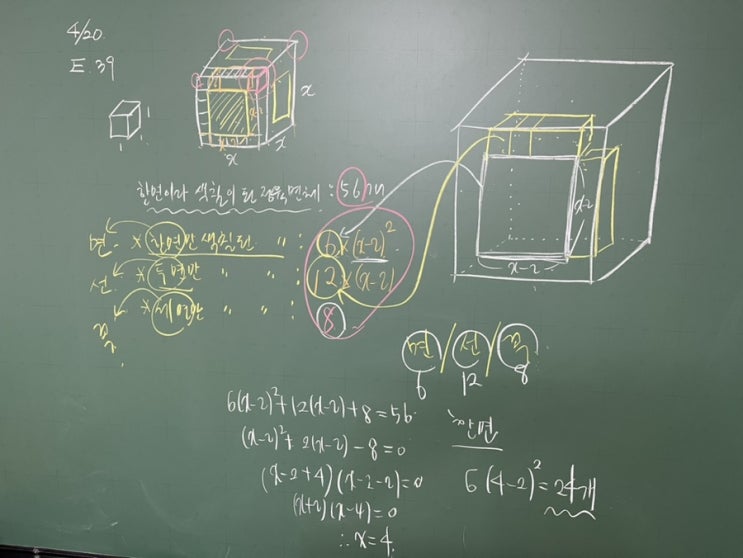 4/20.
E. 39
1
1
x
x-2
x-2
x
x
한면이라도 색칠이 된 정육면체 : 56개
면. * 한면만 색칠된 〃 : 6×(x-2)²
선. * 두면만 〃 〃 : 12×(x-2)
꼭. * 세면만 〃 〃 : 8
x-2
x-2
면/선/꼭
6 12 8
6(x-2)²+12(x-2)+8=56
(x-2)²+2(x-2)-8=0
(x-2+4)(x-2-2)=0
(x+2)(x-4)=0
∴x=4.
한면
6(4-2)²=24개